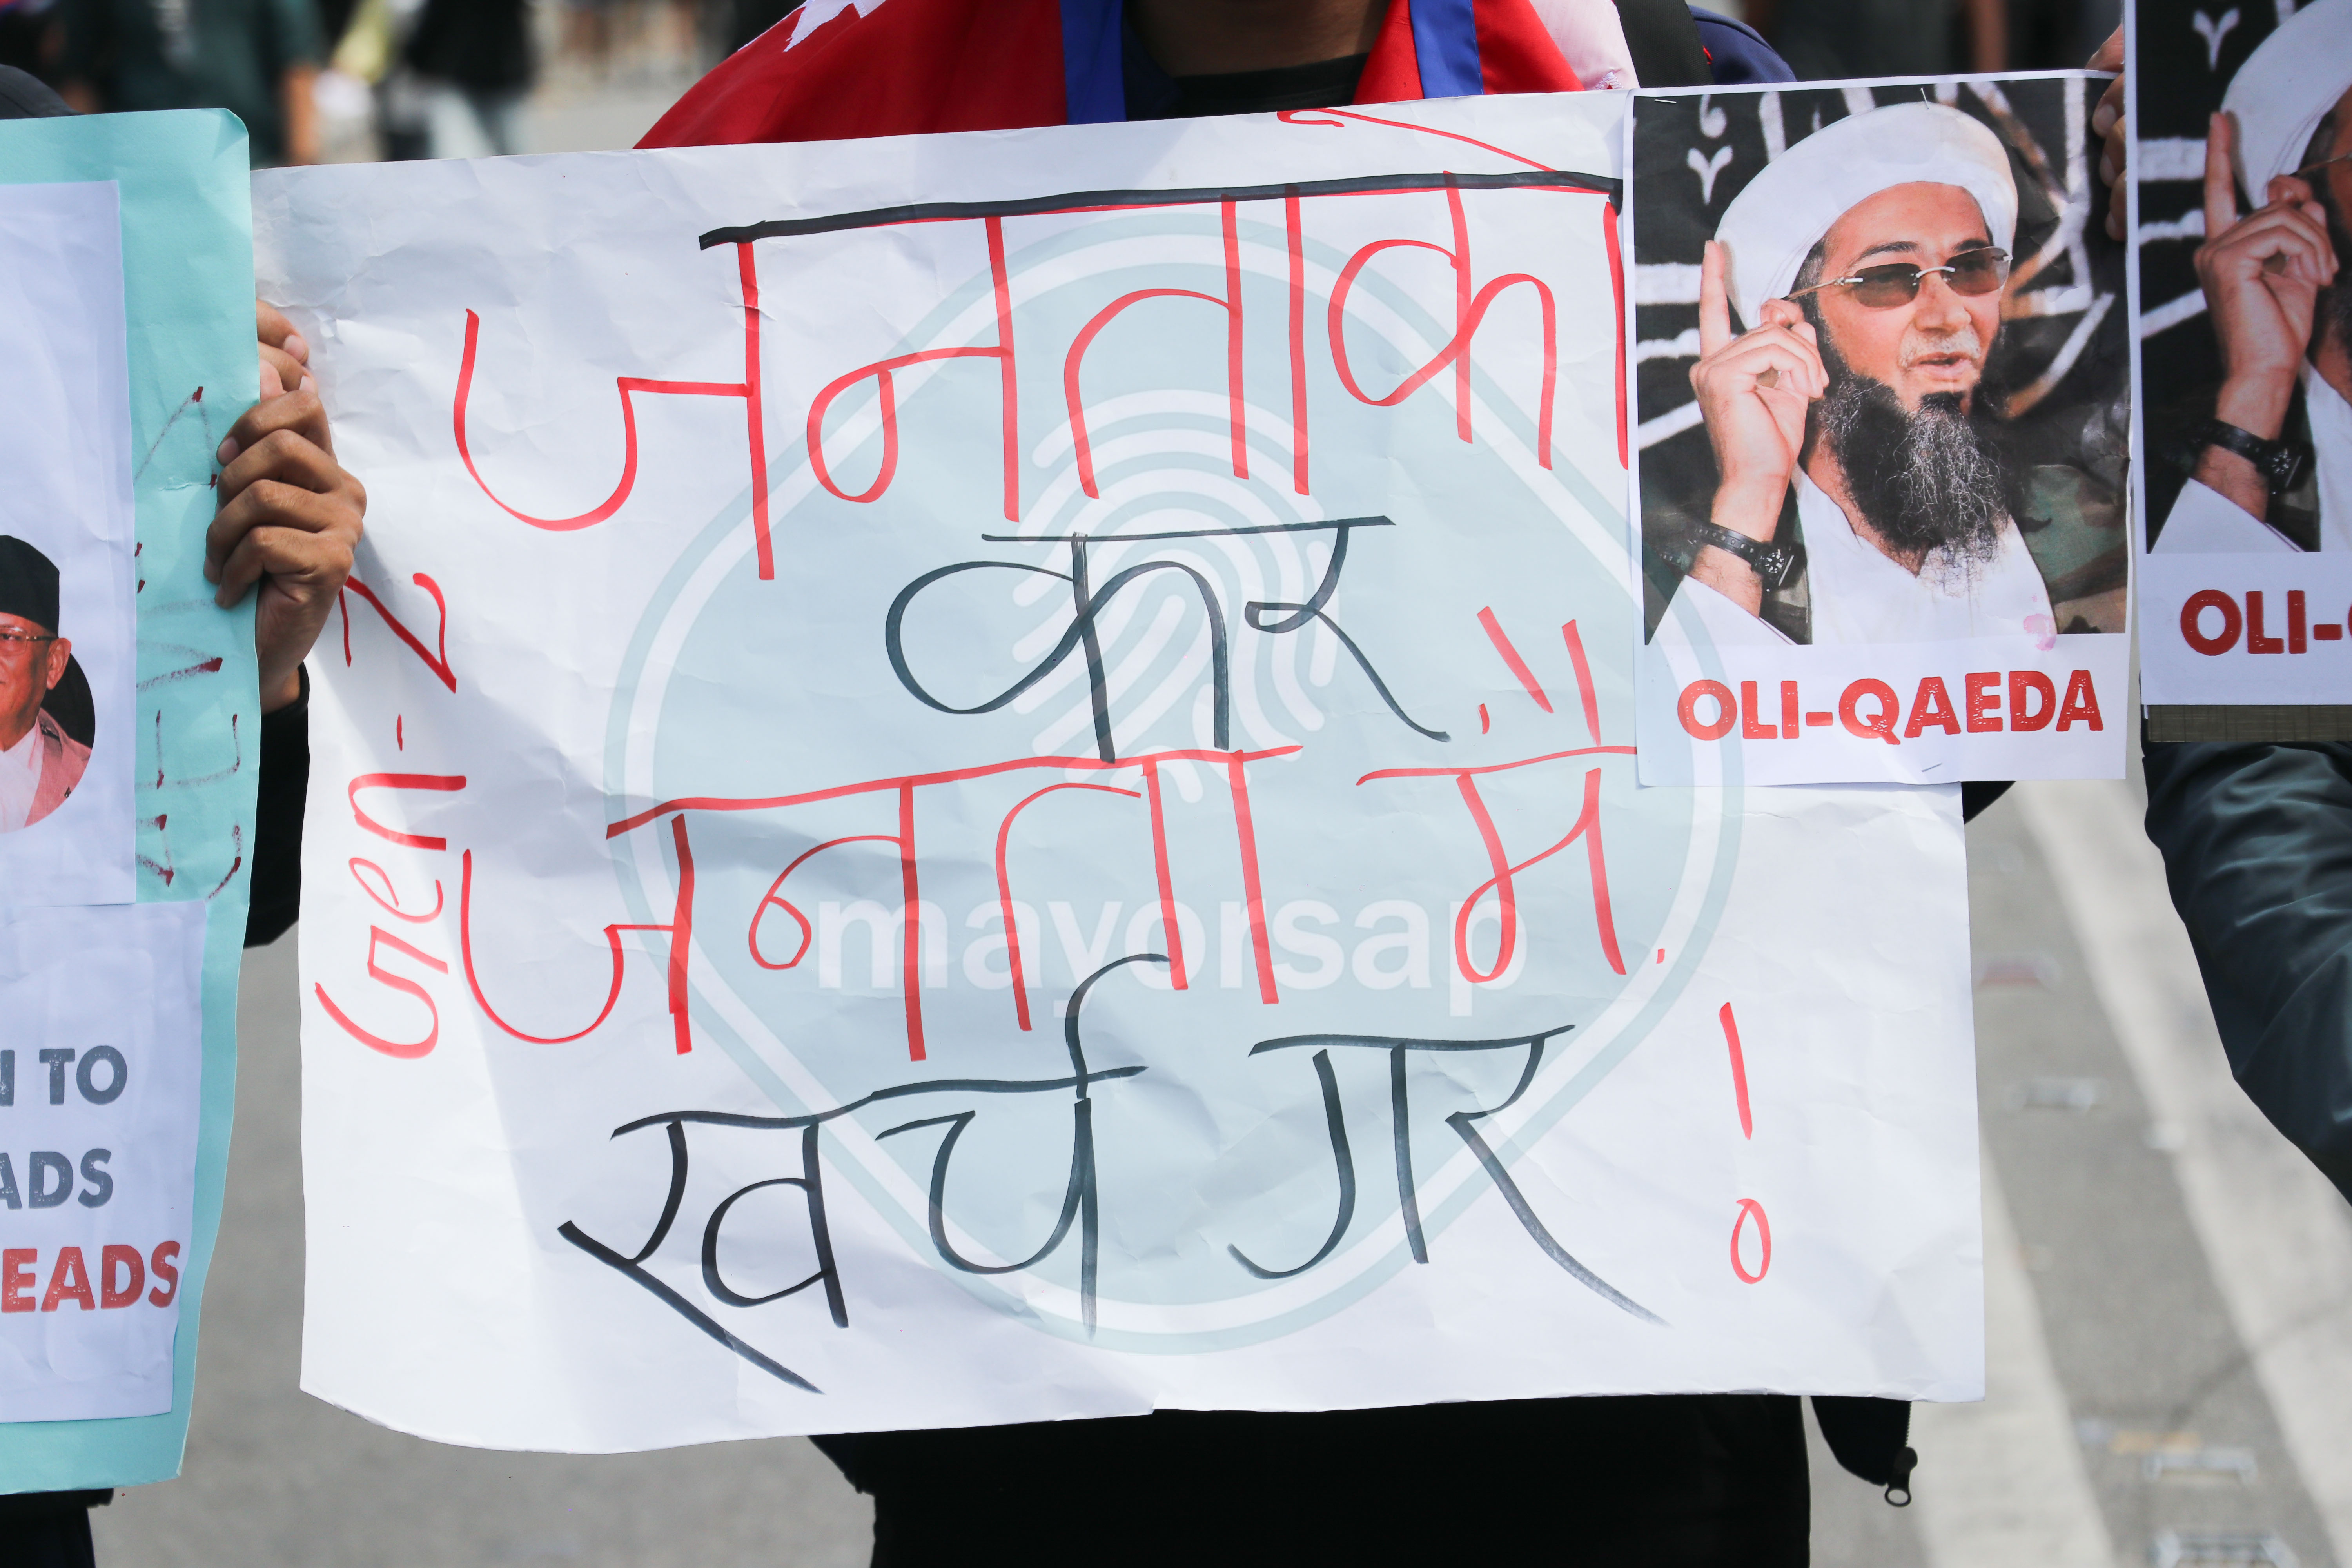 जनताको
कर
जनतामै
खर्च गर !
Gen-Z
OLI-QAEDA
OLI-
TO
ADS
EADS
mayorsap